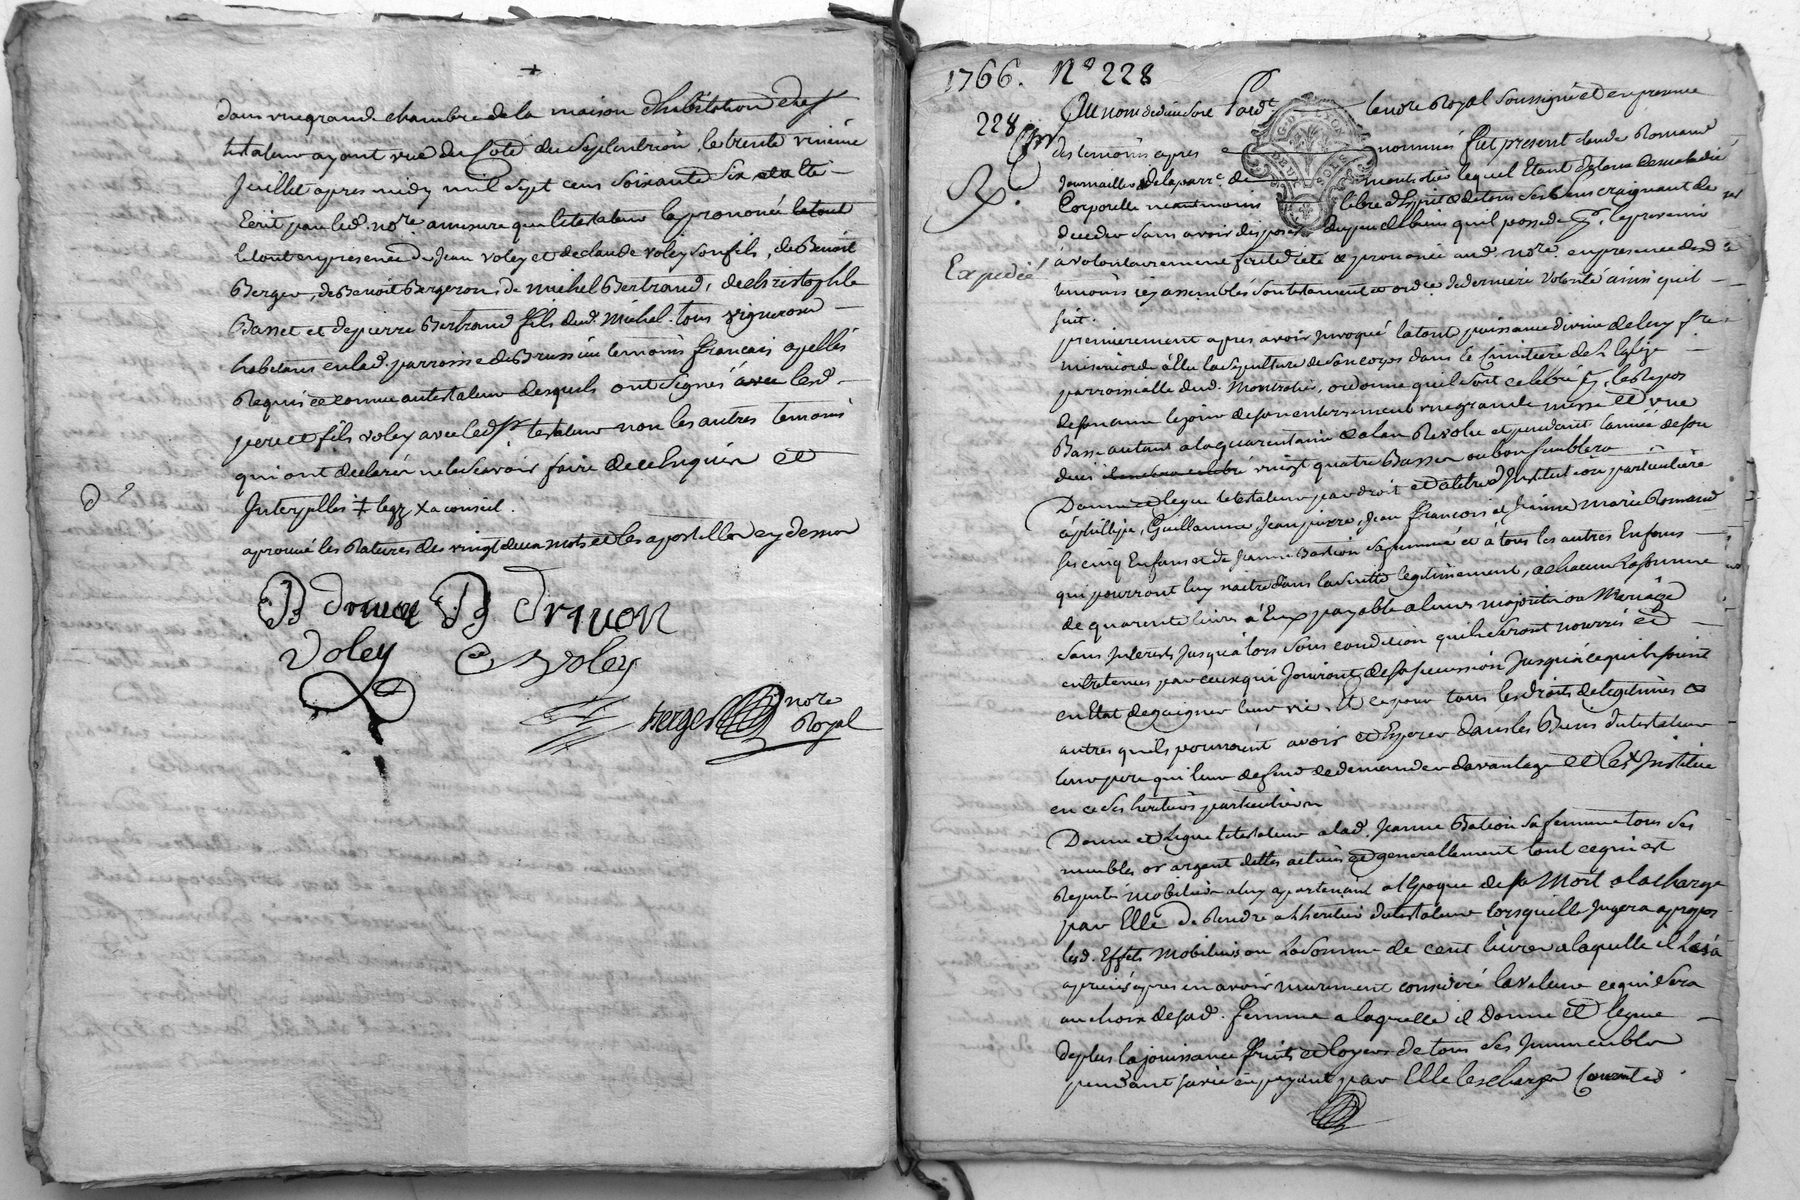 dans une grande chambre de la maison d'habitation dud.
testateur ayant vue du coté du septentrion, le trente unieme
juillet apres midy mil sept cens soixante six
Ecrit par led. not.re a mesure que le testateur l'a prononcé le tout
le tout en presence de jean voley et de claude voley son fils, de Benoit
Berger, de Benoit Bergeron, de michel Bertrand, de christophle
Basset et de pierre Bertrand fils dud. michel, tous vignerons
habitans en lad. parroisse de temoins francais apellés
Requis et connus au testateur desquels ont signés avec lesd.
pere et fils voley avec led. testateur non les autres temoins
qui ont declarés ne le scavoir faire de ce enquis et
Interpellés
aprouvé les Ratures des vingt deux mots et les apostilles cy dessus
Voley C Voley
Berger nore
Royal
1766. N° 228
228
Expedié
Au nom de dieu soit Pard.t le nore Royal soussigné et en presence
GD LYON DEUX SOLS
des temoins apres nommés fut present claude Romand
journaillier de la parr.e de montrotier lequel Etant detenu de maladie
Corporelle neantmoins libre d'Esprit et de tous ses sens craignant de
deceder sans avoir disposé du peu de biens qu'il possede
à volontairement fait dicté et prononcé aud. nore en presence desd.
temoins icy assemblés son testament et ord.ce de derniere volonté ainsi qu'il
suit.
premierement apres avoir invoqué la tout puissance divine de luy f.re
misericorde à Elu la sepulture de son corps dans le cimitiere de l'Eglise
parroissialle dud. Montrotier, ordonne qu'il soit celebré p. le Repos
de son ame le jour de son enterrement une grande messe et une
Basse autant a la quarantaine et a l'an Revolu et pendant l'année de son
decès vingt quatre Basses ou bon semblera
Donne et legue le testateur par droit et a titre d'Institution particuliere
à phillipe, Guillaume, Jean pierre, Jean francois et Jeanne marie Romand
ses cinq Enfans et de Jeanne Bation sa femme et à tous les autres Enfans
qui pourront luy naitre dans la suitte legitimement, a chacun la somme
de quarente livres à Eux payable a leurs majorité ou Mariage
sans Interets jusqu'a lors sous condition qu'ils seront nourris et
entretenus par ceux qui jouiront de sa succession jusqu'à ce qu'ils soient
en Etat de gaigner leur vie Et ce pour tous les droits de legitimes et
autres quels pourroient avoir et Esperer dans les Biens du testateur
leur pere qui leur defend de demander davantage et les Institue
en ce ses heritiers particuliers
Donne et legue le testateur a lad. Jeanne Bation sa femme tous ses
meubles or argent dettes actives et generallement tout ce qui est
Reputé mobilier a luy apartenant a l'Epoque de sa Mort a la charge
par Elle de Rendre a l'heritier du testateur lorsqu'elle jugera apropos
lesd. Effets Mobiliers ou la somme de cent livres a laquelle il les a
apreciés apres en avoir murement consideré la valeur ce qui sera
au choix de sad. femme a laquelle il donne et legue
de plus la jouissance fruits et loyers de tous ses Immeubles
pendant sa vie en payant par Elle les charges